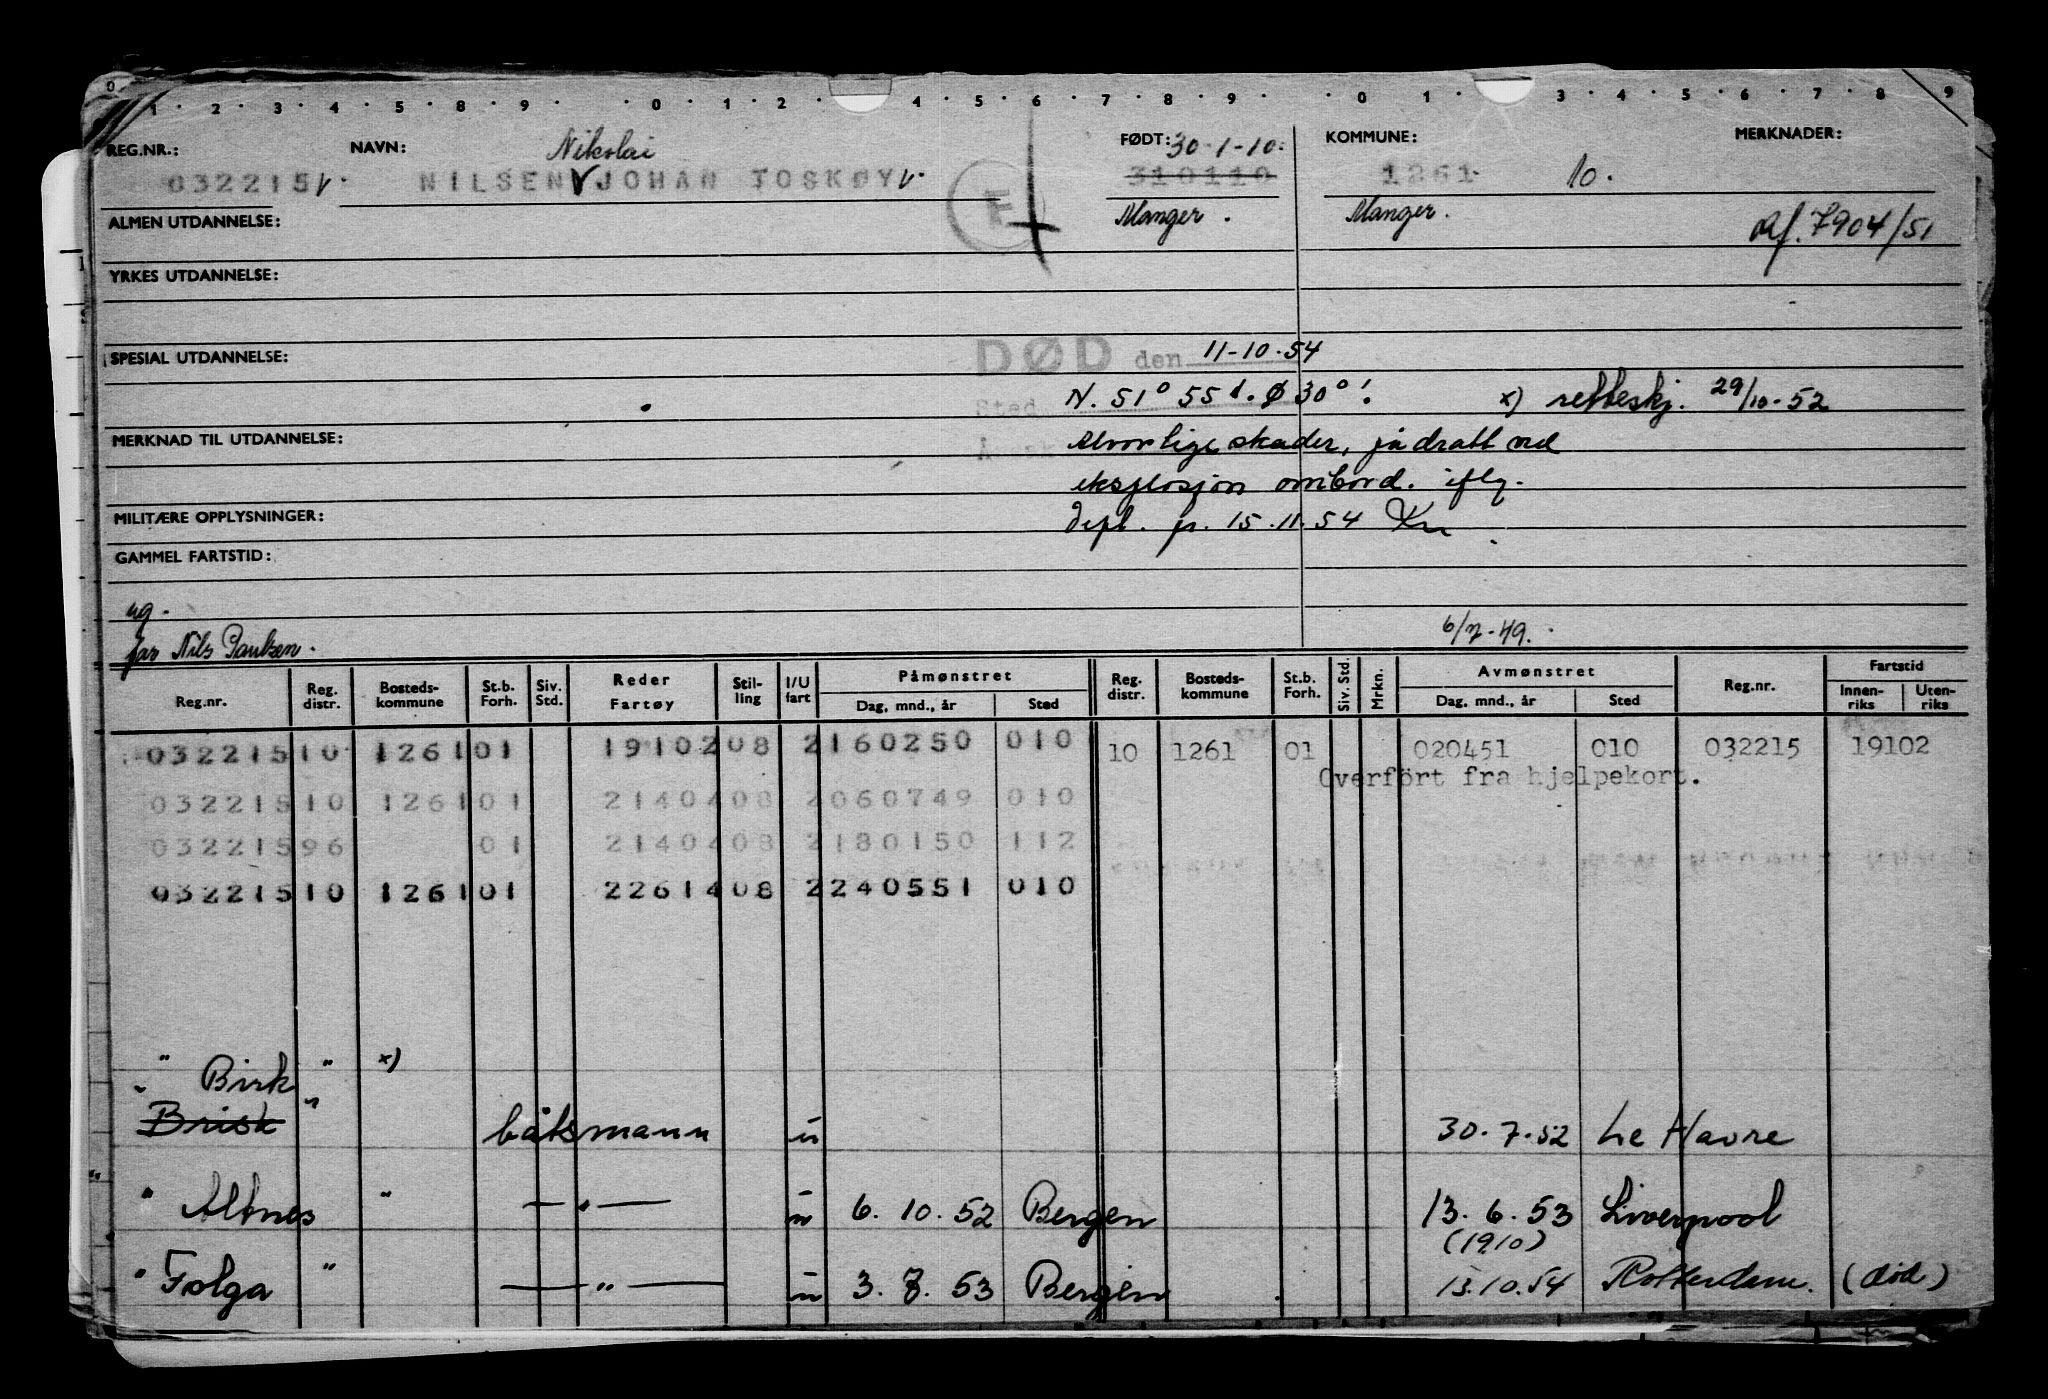 0 1 2 3 4 5 6 8 9 0 1 2 4 5 6 7 8 9 0 1 3 4 5 6 7 8 9
REG.NR.: NAVN: Nikolai FØDT: 30-1-10. KOMMUNE: MERKNADER:
032215 NILSEN JOHAN TOSKØY E 310110 1261 10.
ALMEN UTDANNELSE: Manger. Manger. 7904/51
YRKES UTDANNELSE:
SPESIAL UTDANNELSE: DØD den 11-10-54
Sted N. 51° 55'. Ø 30°! x) retteskj. 29/10-52
MERKNAD TIL UTDANNELSE: Alvorlige skader, pådratt ved
eksplosjon ombord. iflg.
MILITÆRE OPPLYSNINGER: 15.11.54
GAMMEL FARTSTID:
ug.
far Nils Paulsen. 6/7-49.
Reg.nr. Reg. distr. Bosteds-kommune St.b. Forh. Siv. Std. Reder Fartøy Stil-ling I/U fart Påmønstret Dag, mnd., år Sted Reg. distr. Bosteds-kommune St.b. Forh. Siv. Std. Mrkn. Avmønstret Dag, mnd., år Sted Reg.nr. Fartstid Innen-riks Uten-riks
032215 10 1261 01 19102 08 2 160250 010 10 1261 01 020451 010 032215 19102
Overført fra hjelpekort.
032215 10 1261 01 21404 08 2 060749 010
032215 96 01 21404 08 2 180150 112
032215 10 1261 01 22614 08 2 240551 010
" Birk " x)
Brisk " båtsmann u 30.7.52 Le Havre
" Altnes " — " — u 6.10.52 Bergen 13.6.53 Liverpool
(1910)
" Folga " — " — u 3.7.53 Bergen 13.10.54 Rotterdam. (død)